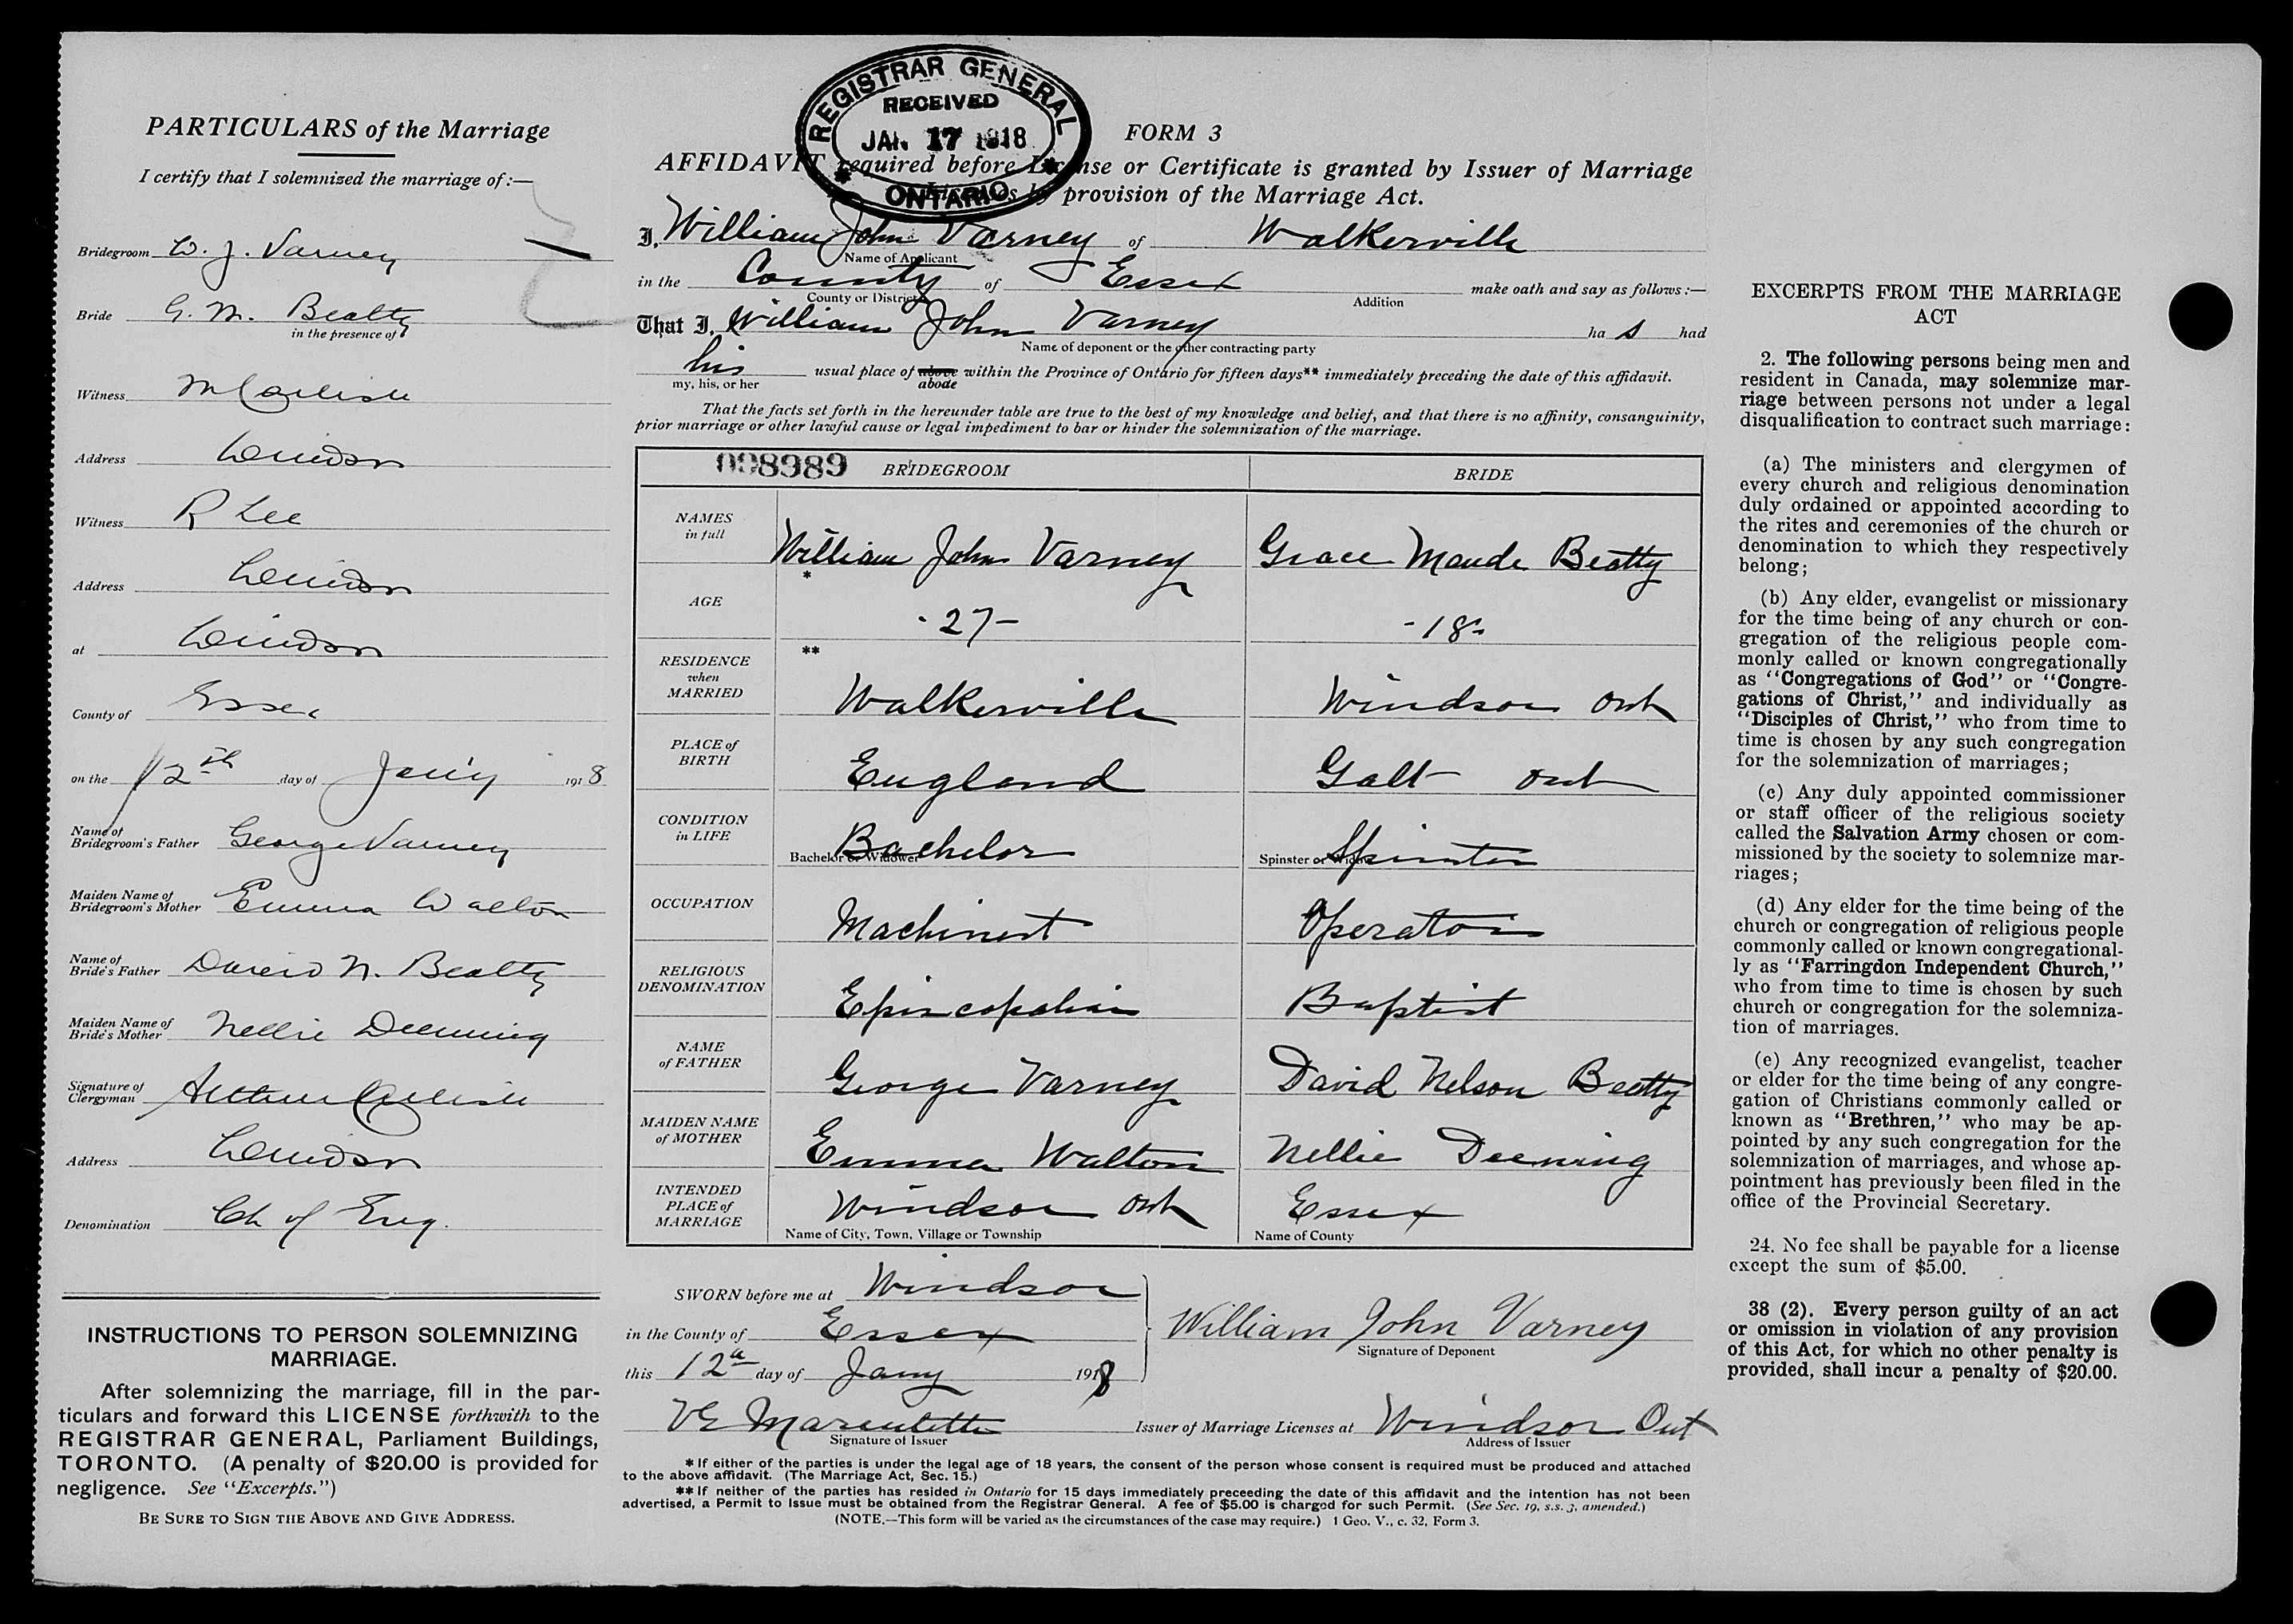 PARTICULARS of the Marriage
I certify that I solemnized the marriage of:—
Bridegroom W. J. Varney
Bride G. M. Beatty
in the presence of
Witness M Carlisle
Address Windsor
Witness R Lee
Address Windsor
at Windsor
County of Essex
on the 12th day of Jan'y 1918
Name of
Bridegroom's Father George Varney
Maiden Name of
Bridegroom's Mother Emma Walton
Name of
Bride's Father David N. Beatty
Maiden Name of
Bride's Mother Nellie Deeming
Signature of
Clergyman Arthur Carlisle
Address Windsor
Denomination Ch of Eng.
INSTRUCTIONS TO PERSON SOLEMNIZING
MARRIAGE.
After solemnizing the marriage, fill in the par-
ticulars and forward this LICENSE forthwith to the
REGISTRAR GENERAL, Parliament Buildings,
TORONTO. (A penalty of $20.00 is provided for
negligence. See "Excerpts.")
BE SURE TO SIGN THE ABOVE AND GIVE ADDRESS.
REGISTRAR GENERAL
RECEIVED
JAN 17 1918
ONTARIO
FORM 3
AFFIDAVIT required before License or Certificate is granted by Issuer of Marriage
by provision of the Marriage Act.
I, William John Varney of Walkerville
Name of Applicant
in the County of Essex make oath and say as follows:—
County or District Addition
That I, William John Varney ha s had
Name of deponent or the other contracting party
his usual place of above within the Province of Ontario for fifteen days** immediately preceding the date of this affidavit.
my, his, or her abode
That the facts set forth in the hereunder table are true to the best of my knowledge and belief, and that there is no affinity, consanguinity,
prior marriage or other lawful cause or legal impediment to bar or hinder the solemnization of the marriage.
008989 BRIDEGROOM BRIDE
NAMES
in full William John Varney Grace Maude Beatty
*
AGE -27- -18-
**
RESIDENCE
when
MARRIED Walkerville Windsor Ont
PLACE of
BIRTH England Galt Ont
CONDITION
in LIFE Bachelor Spinster
Bachelor or Widower Spinster or Widow
OCCUPATION Machinist Operator
RELIGIOUS
DENOMINATION Episcopalian Baptist
NAME
of FATHER George Varney David Nelson Beatty
MAIDEN NAME
of MOTHER Emma Walton Nellie Deeming
INTENDED
PLACE of
MARRIAGE Windsor Ont Essex
Name of City, Town, Village or Township Name of County
SWORN before me at Windsor
in the County of Essex William John Varney
Signature of Deponent
this 12th day of Jany 1918
V E Marentette Issuer of Marriage Licenses at Windsor Ont
Signature of Issuer Address of Issuer
* If either of the parties is under the legal age of 18 years, the consent of the person whose consent is required must be produced and attached
to the above affidavit. (The Marriage Act, Sec. 15.)
** If neither of the parties has resided in Ontario for 15 days immediately preceeding the date of this affidavit and the intention has not been
advertised, a Permit to Issue must be obtained from the Registrar General. A fee of $5.00 is charged for such Permit. (See Sec. 19, s.s. 3, amended.)
(NOTE.—This form will be varied as the circumstances of the case may require.) 1 Geo. V., c. 32, Form 3.
EXCERPTS FROM THE MARRIAGE
ACT
2. The following persons being men and
resident in Canada, may solemnize mar-
riage between persons not under a legal
disqualification to contract such marriage:
(a) The ministers and clergymen of
every church and religious denomination
duly ordained or appointed according to
the rites and ceremonies of the church or
denomination to which they respectively
belong;
(b) Any elder, evangelist or missionary
for the time being of any church or con-
gregation of the religious people com-
monly called or known congregationally
as "Congregations of God" or "Congre-
gations of Christ," and individually as
"Disciples of Christ," who from time to
time is chosen by any such congregation
for the solemnization of marriages;
(c) Any duly appointed commissioner
or staff officer of the religious society
called the Salvation Army chosen or com-
missioned by the society to solemnize mar-
riages;
(d) Any elder for the time being of the
church or congregation of religious people
commonly called or known congregational-
ly as "Farringdon Independent Church,"
who from time to time is chosen by such
church or congregation for the solemniza-
tion of marriages.
(e) Any recognized evangelist, teacher
or elder for the time being of any congre-
gation of Christians commonly called or
known as "Brethren," who may be ap-
pointed by any such congregation for the
solemnization of marriages, and whose ap-
pointment has previously been filed in the
office of the Provincial Secretary.
24. No fee shall be payable for a license
except the sum of $5.00.
38 (2). Every person guilty of an act
or omission in violation of any provision
of this Act, for which no other penalty is
provided, shall incur a penalty of $20.00.